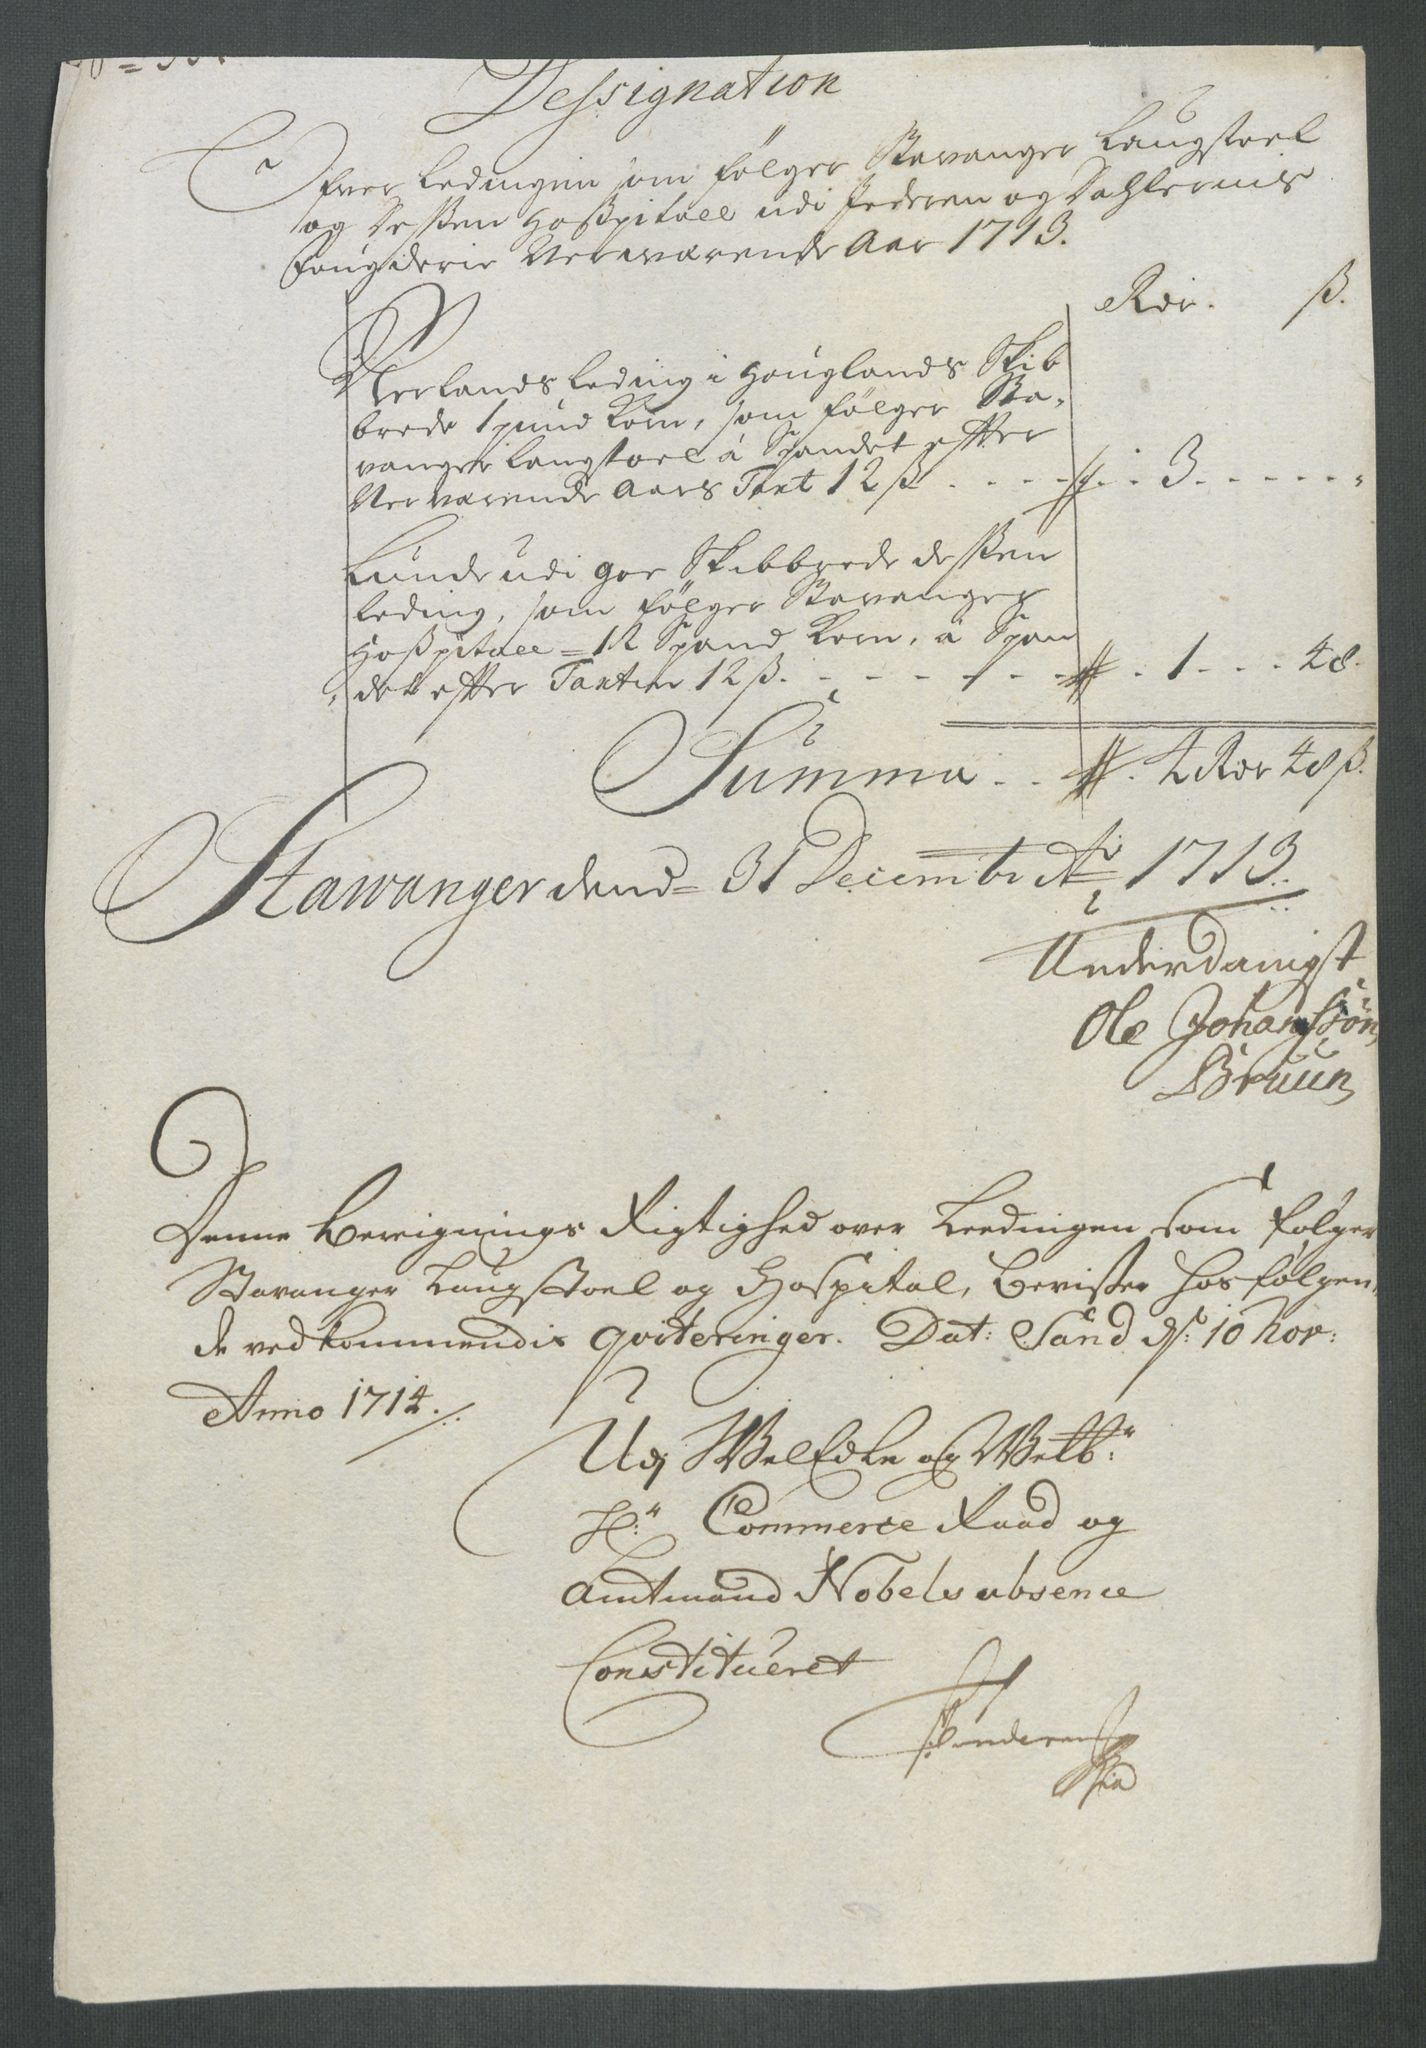 Dessignation
Ofver Ledingen som følger Stavanger Laugstoel
og Sesten Hosspitall udi Jederen og Dahlernis
Fougderie Nerwærende Aar 1713.
Rdr. ß.
Nerlands Leding i Houglands Skib
brede 1 pund Korn, som følger Sta-
vanger Laugstoel à Spandet efter
Nerværende Aars Taxt 12 ß . . . . . 3 . . . . . "
Lunde udi goe Skibbrede dessen
Leding, som følger Stavanger
Hosspitall = 12 Spand Korn, à Span
det efter Taxten 12 ß. - - - - - - . 1 . . . 48.
Summa . . . 4 Rdr 48 ß.
Stawanger dend = 31 Decembr Ao 1713.
Underdanigst
Ole Johanssøn
Bruun
Denne Beregnings Rigtighed over Leedingen som følger
Stavanger Laugstoel og Hospital, bevister hos følgen,
de vedkommendis qviteringer. Dat: Sand ds: 10 Nov:
Anno 1714.
Udj WelEdle og Welb:r
Hr: Commerce Raad og
Amtmand Nobels absence
Constitueret